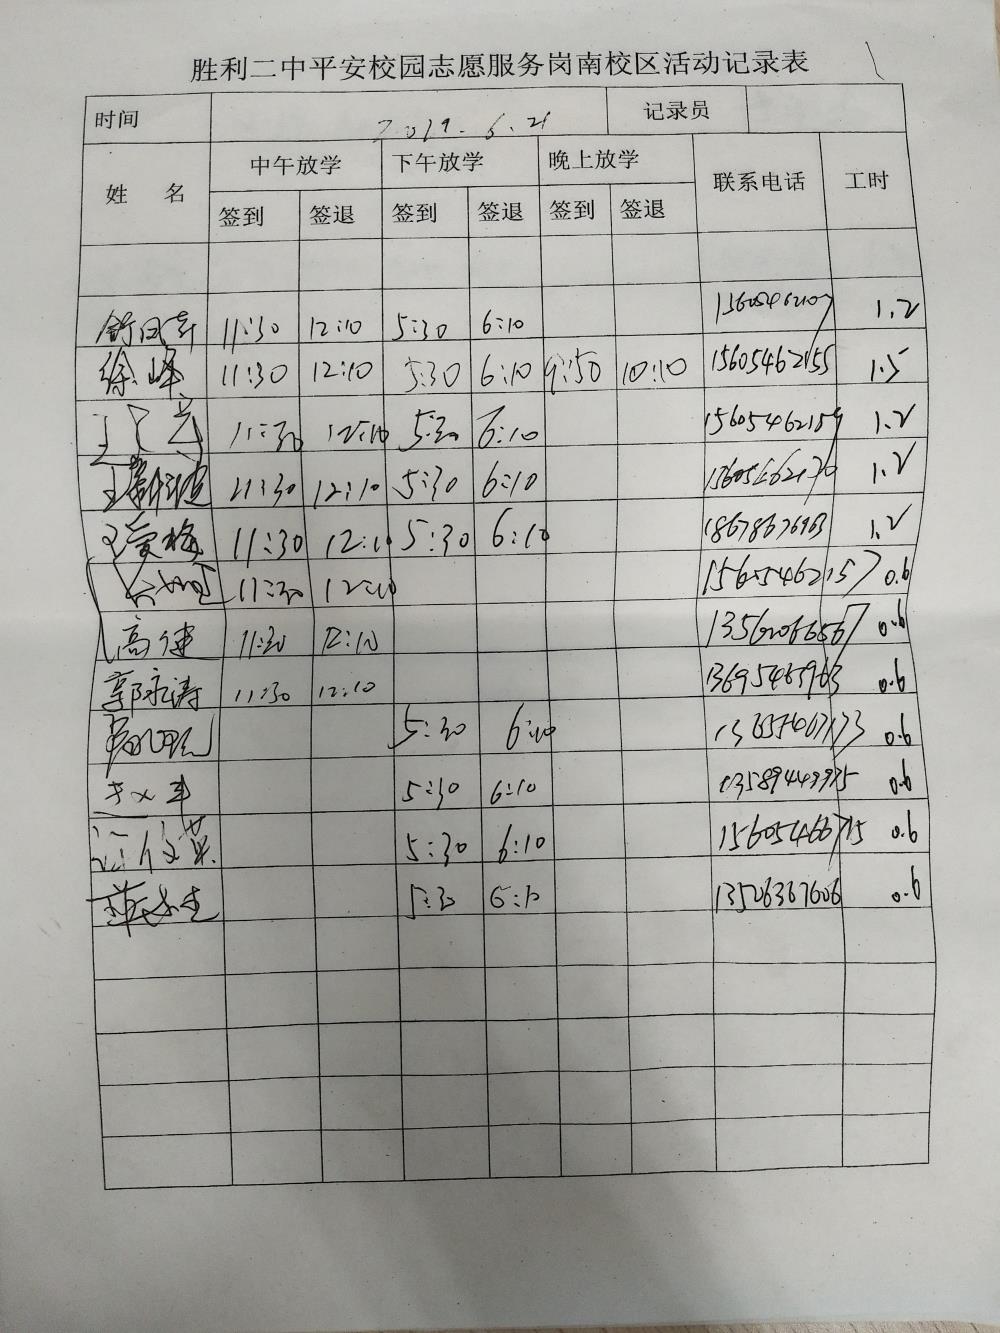 胜利二中平安校园志愿服务岗南校区活动记录表
时间 2019.6.21 记录员
姓 名 中午放学 下午放学 晚上放学 联系电话 工时
签到 签退 签到 签退 签到 签退
11:30 12:10 5:30 6:10 1.2
徐峰 11:30 12:10 5:30 6:10 9:50 10:10 15605462155 1.5
11:30 12:10 5:30 6:10 15605462159 1.2
11:30 12:10 5:30 6:10 1.2
王爱梅 11:30 12:10 5:30 6:10 18678676963 1.2
11:30 12:10 15605462157 0.6
高健 11:30 12:10 0.6
郭永涛 11:30 12:10 0.6
5:30 6:10 0.6
5:30 6:10 0.6
5:30 6:10 0.6
5:30 6:10 13526367606 0.6